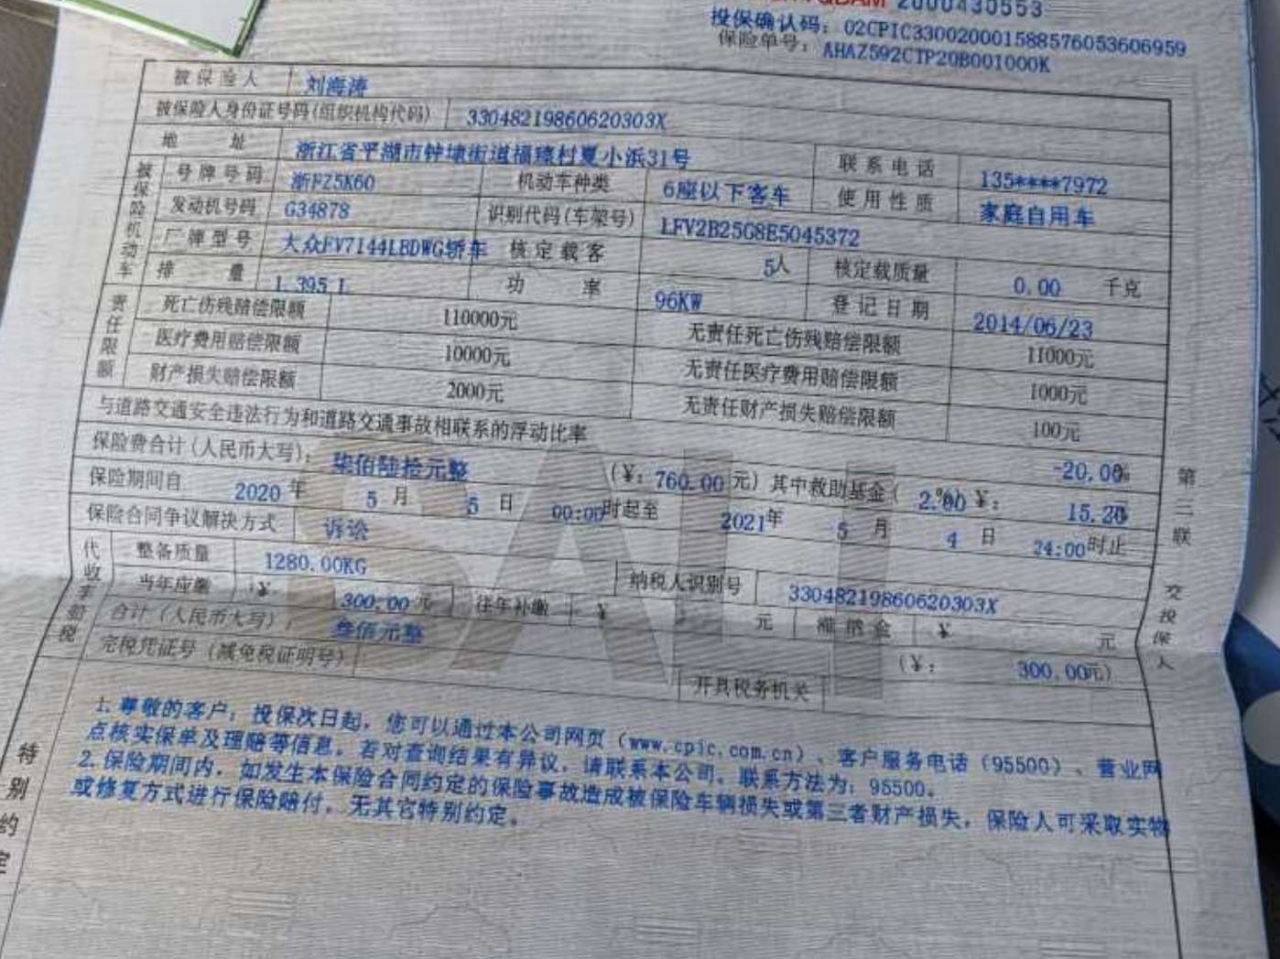 2000430553
投保确认码：02CPIC330020001588576053606959
保险单号：AHAZ592CTP20B001000K
被保险人 刘海涛
被保险人身份证号码(组织机构代码) 33048219860620303X
地 址 浙江省平湖市钟埭街道福臻村夏小浜31号 联系电话 135****7972
被保险机动车
号牌号码 浙FZ5K60 机动车种类 6座以下客车 使用性质 家庭自用车
发动机号码 G34878 识别代码(车架号) LFV2B25G8E5045372
厂牌型号 大众FV7144LBDWG轿车 核定载客 5人 核定载质量 0.00 千克
排 量 1.395 L 功 率 96KW 登记日期 2014/06/23
责任限额
死亡伤残赔偿限额 110000元 无责任死亡伤残赔偿限额 11000元
医疗费用赔偿限额 10000元 无责任医疗费用赔偿限额 1000元
财产损失赔偿限额 2000元 无责任财产损失赔偿限额 100元
与道路交通安全违法行为和道路交通事故相联系的浮动比率 -20.00%
保险费合计(人民币大写)： 柒佰陆拾元整 (¥：760.00 元) 其中救助基金( 2.00 %) ¥： 15.20
保险期间自 2020 年 5 月 5 日 00:00 时起至 2021 年 5 月 4 日 24:00 时止
保险合同争议解决方式 诉讼
代收车船税
整备质量 1280.00KG 纳税人识别号 33048219860620303X
当年应缴 ¥ 300.00 元 往年补缴 ¥ 元 滞纳金 ¥ 元
合计(人民币大写)： 叁佰元整 (¥： 300.00元)
完税凭证号 (减免税证明号) 开具税务机关
特别约定
1.尊敬的客户：投保次日起，您可以通过本公司网页（www.cpic.com.cn）、客户服务电话（95500）、营业网
点核实保单及理赔等信息。若对查询结果有异议，请联系本公司。联系方法为：95500。
2.保险期间内，如发生本保险合同约定的保险事故造成被保险车辆损失或第三者财产损失，保险人可采取实物
或修复方式进行保险赔付。无其它特别约定。
第二联 交投保人